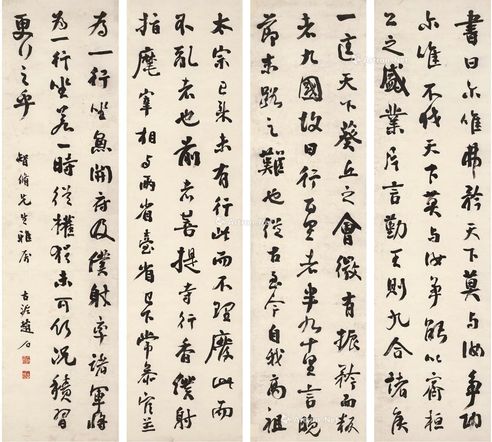 書曰尔唯弗矜天下莫与汝争功
尔唯不伐天下莫与汝争能以齊桓
公之盛業片言勤王則九合諸侯
一匡天下葵丘之會微有振矜而叛
者九國故曰行百里者半九十里言晚
節末路之難也從古至今自我高祖
太宗已來未有行此而不理廢此而
不亂者也前者菩提寺行香僕射
指麾宰相与兩省臺省已下常參官並
為一行坐魚開府及僕射率諸軍將
為一行坐若一時從權猶未可何況積習
更行之乎
先生雅属
古泥趙石